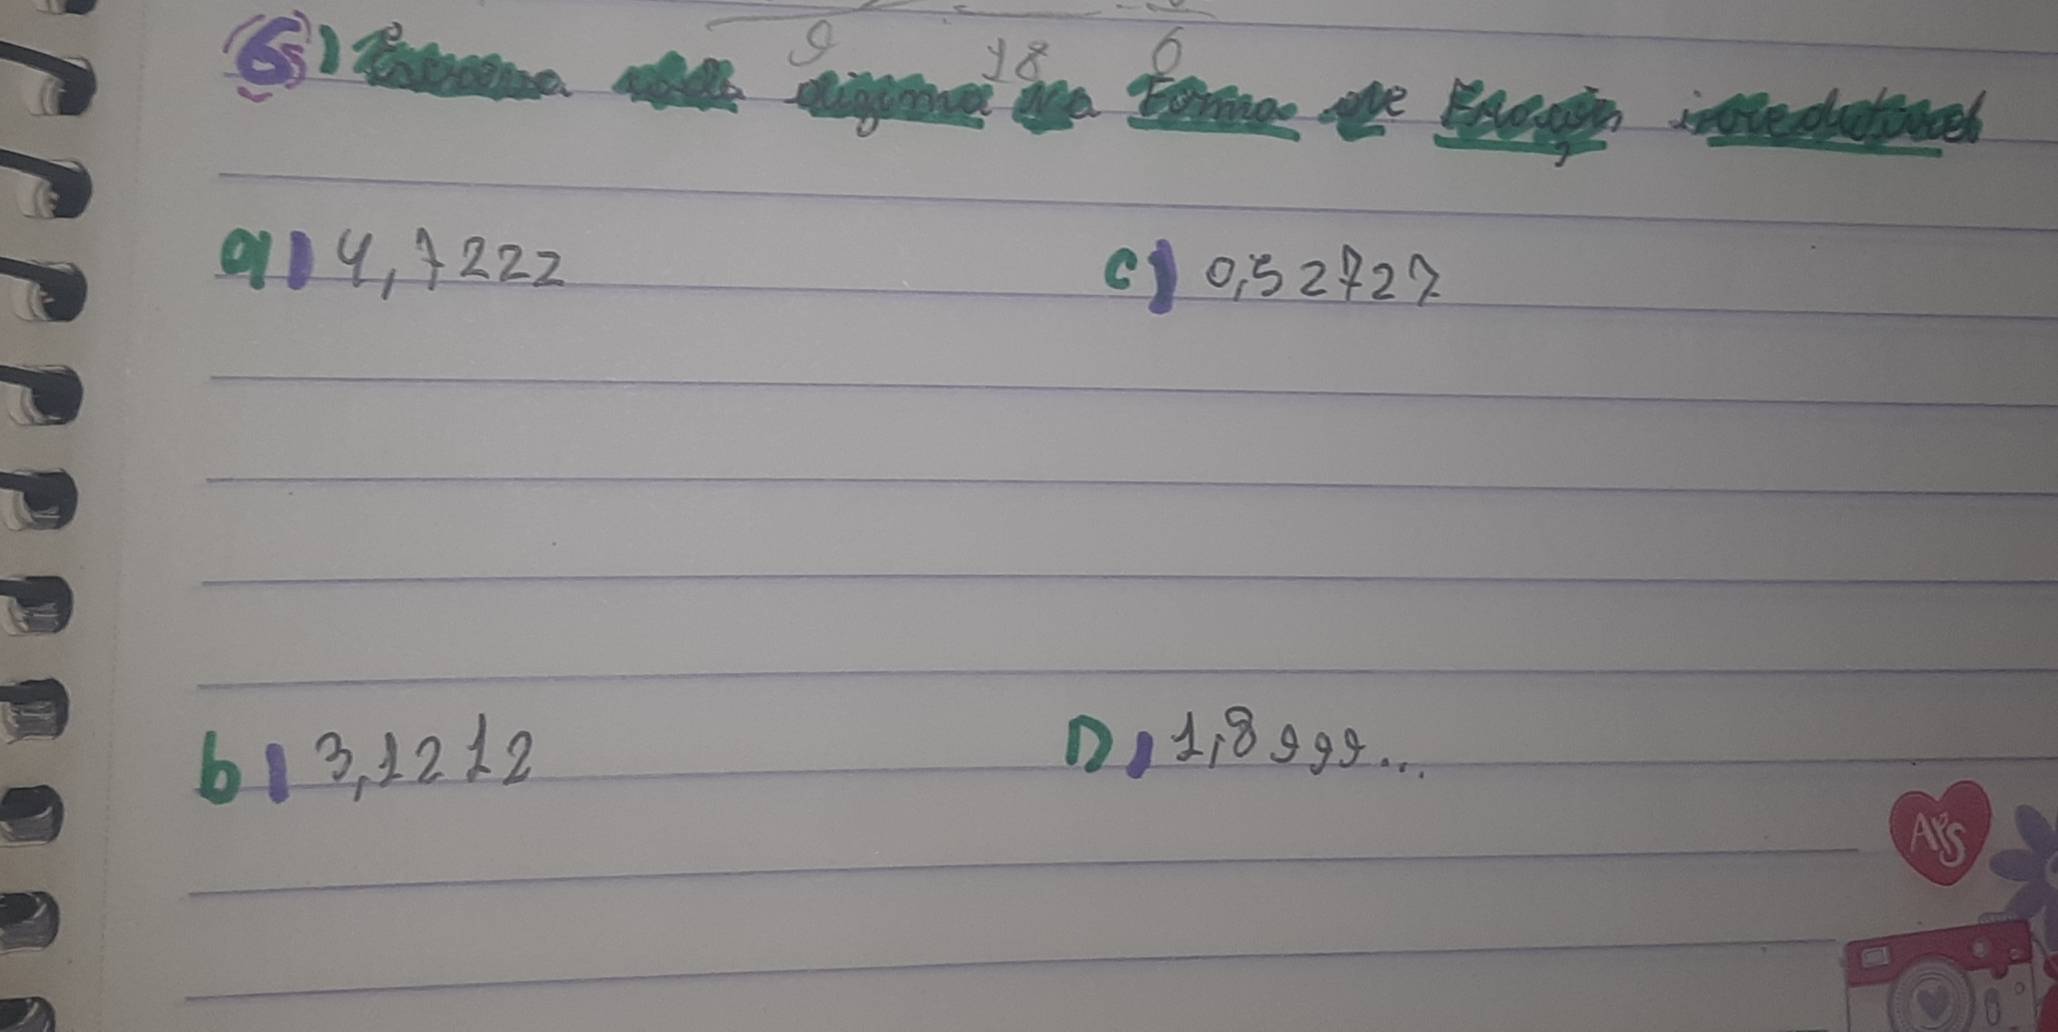 9 18 6
6) Escreva cada dizima na Forma de Fração irredutivel
a) 4,7222
c) 0,52727
b) 3,1212
D) 1,8999...
APS